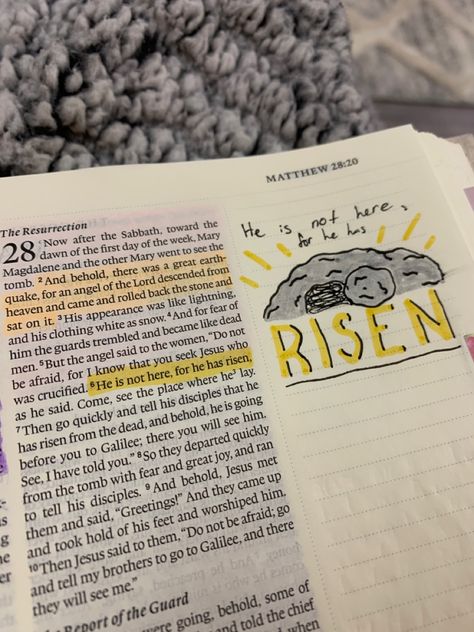 MATTHEW 28:20
The Resurrection
28 Now after the Sabbath, toward the
dawn of the first day of the week, Mary
Magdalene and the other Mary went to see the
tomb. 2 And behold, there was a great earth-
quake, for an angel of the Lord descended from
heaven and came and rolled back the stone and
sat on it. 3 His appearance was like lightning,
and his clothing white as snow. 4 And for fear of
him the guards trembled and became like dead
men. 5 But the angel said to the women, “Do not
be afraid, for I know that you seek Jesus who
was crucified. 6 He is not here, for he has risen,
as he said. Come, see the place where he lay.
7 Then go quickly and tell his disciples that he
has risen from the dead, and behold, he is going
before you to Galilee; there you will see him.
See, I have told you.” 8 So they departed quickly
from the tomb with fear and great joy, and ran
to tell his disciples. 9 And behold, Jesus met
them and said, “Greetings!” And they came up
and took hold of his feet and worshiped him.
10 Then Jesus said to them, “Do not be afraid; go
and tell my brothers to go to Galilee, and there
they will see me.”
Report of the Guard
were going, behold, some of
and told the chief
He is not here,
for he has
RISEN